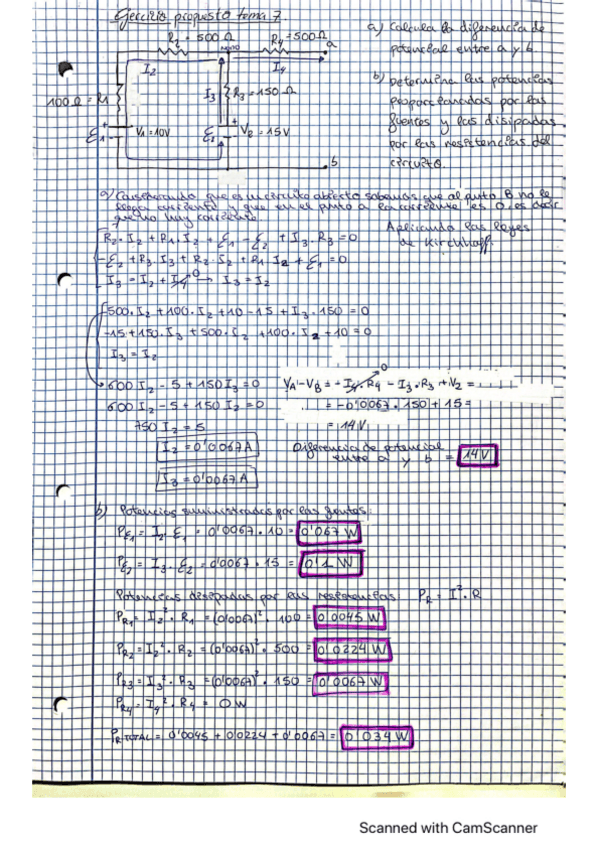 Ejercicio propuesto tema 7.
R2 = 500Ω R4 = 500Ω
a
I2 I4
100Ω = R1 I3 R3 = 150Ω
ε1 V1 = 10V ε2 V2 = 15V
b
a) Calcula la diferencia de
potencial entre a y b.
b) Determina las potencias
proporcionadas por las
fuentes y las disipadas
por las resistencias del
circuito.
a) Considerando que es un circuito abierto sabemos que al punto B no le
llega corriente y que en el punto a la corriente es 0, es decir,
que no hay corriente.
Aplicando las leyes
de Kirchhoff.
R2·I2 + R1·I2 + ε1 - ε2 + I3·R3 = 0
-ε2 + R3·I3 + R2·I2 + R1 I2 + ε1 = 0
I3 = I2 + I4 0 → I3 = I2
500·I2 + 100·I2 + 10 - 15 + I3·150 = 0
-15 + 150·I3 + 500·I2 + 100·I2 + 10 = 0
I3 = I2
600 I2 - 5 + 150 I3 = 0
600 I2 - 5 + 150 I2 = 0
750 I2 = 5
I2 = 0'0067 A
I3 = 0'0067 A
VA - VB = - I4·R4 0 - I3·R3 + V2 =
= -0'0067·150 + 15 =
= 14V
Diferencia de potencial
entre a y b = 14V
b) Potencias suministradas por las fuentes:
Pε1 = I2·ε1 = 0'0067·10 = 0'067 W
Pε2 = I3·ε2 = 0'0067·15 = 0'1 W
Potencias disipadas por las resistencias PR = I²·R
PR1 = I2²·R1 = (0'0067)²·100 = 0'0045 W
PR2 = I2²·R2 = (0'0067)²·500 = 0'0224 W
PR3 = I3²·R3 = (0'0067)²·150 = 0'0067 W
PR4 = I4²·R4 = 0 W
PR TOTAL = 0'0045 + 0'0224 + 0'0067 = 0'034 W
Scanned with CamScanner